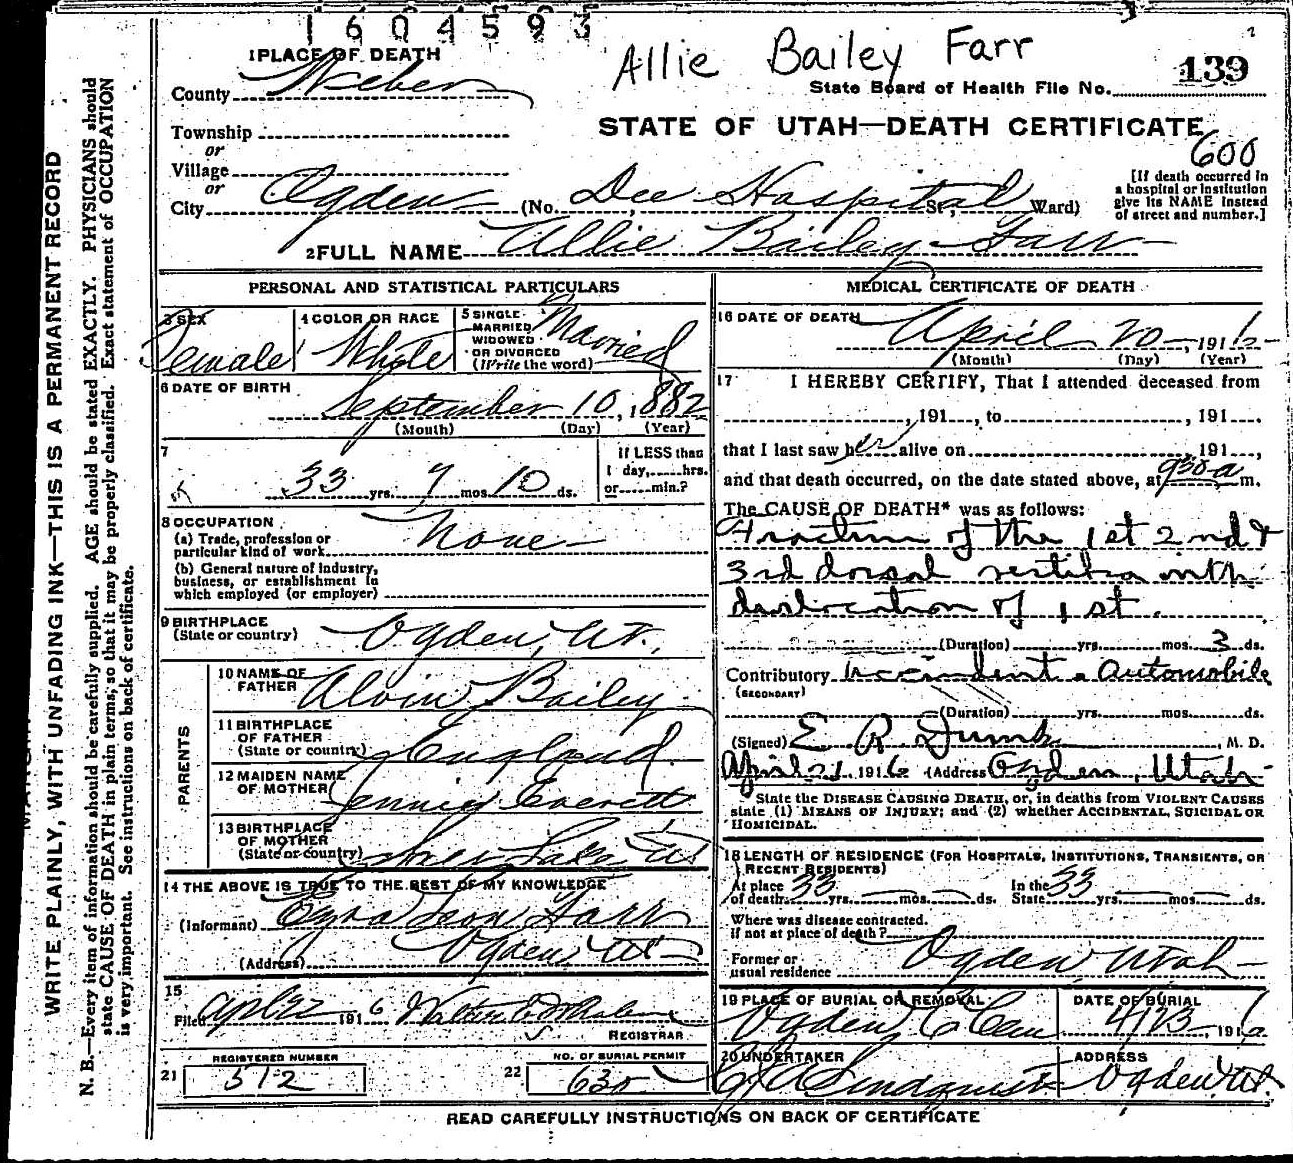 1604593
Allie Bailey Farr
1 PLACE OF DEATH
County Weber
State Board of Health File No. 139
Township
or
STATE OF UTAH—DEATH CERTIFICATE
600
Village
or
City Ogden (No. Dee Hospital St., Ward)
[If death occurred in
a hospital or institution
give its NAME instead
of street and number.]
2 FULL NAME Allie Bailey Farr
PERSONAL AND STATISTICAL PARTICULARS
3 SEX
Female
4 COLOR OR RACE
White
5 SINGLE
MARRIED
WIDOWED
OR DIVORCED
(Write the word)
Married
6 DATE OF BIRTH
September 10, 1882
(Month) (Day) (Year)
7
33 yrs. 7 mos. 10 ds.
If LESS than
1 day,......hrs.
or......min.?
8 OCCUPATION
(a) Trade, profession or
particular kind of work None
(b) General nature of industry,
business, or establishment in
which employed (or employer)
9 BIRTHPLACE
(State or country) Ogden, Ut.
PARENTS
10 NAME OF
FATHER Alvin Bailey
11 BIRTHPLACE
OF FATHER
(State or country) England
12 MAIDEN NAME
OF MOTHER Jennie Everett
13 BIRTHPLACE
OF MOTHER
(State or country) Lake Ut
14 THE ABOVE IS TRUE TO THE BEST OF MY KNOWLEDGE
(Informant) Ezra Leon Farr
(Address) Ogden Ut
15
Filed Apl 22 1916 Walter
REGISTRAR
REGISTERED NUMBER
21 512
NO. OF BURIAL PERMIT
22 630
MEDICAL CERTIFICATE OF DEATH
16 DATE OF DEATH
April 20, 1916
(Month) (Day) (Year)
17 I HEREBY CERTIFY, That I attended deceased from
, 191...., to , 191....,
that I last saw her alive on 191....,
and that death occurred, on the date stated above, at 930 a m.
The CAUSE OF DEATH* was as follows:
Fracture of the 1st 2nd &
3rd dorsal vertibra with
dislocation of 1st.
(Duration) yrs. mos. 3 ds.
Contributory Accident Automobile
(SECONDARY)
(Duration) yrs. mos. ds.
(Signed) E. R. Dumke, M. D.
April 21, 1916 (Address) Ogden, Utah
State the DISEASE CAUSING DEATH, or, in deaths from VIOLENT CAUSES
state (1) MEANS OF INJURY; and (2) whether ACCIDENTAL, SUICIDAL OR
HOMICIDAL.
18 LENGTH OF RESIDENCE (FOR HOSPITALS, INSTITUTIONS, TRANSIENTS, OR
RECENT RESIDENTS)
At place
of death 33 yrs. mos. ds.
In the
State 33 yrs. mos. ds.
Where was disease contracted.
if not at place of death?
Former or
usual residence Ogden Utah
19 PLACE OF BURIAL OR REMOVAL
Ogden C Cem
DATE OF BURIAL
4/23, 1916
20 UNDERTAKER
Lindquist
ADDRESS
Ogden Ut.
READ CAREFULLY INSTRUCTIONS ON BACK OF CERTIFICATE
WRITE PLAINLY, WITH UNFADING INK—THIS IS A PERMANENT RECORD
N. B.—Every item of information should be carefully supplied. AGE should be stated EXACTLY. PHYSICIANS should
state CAUSE OF DEATH in plain terms, so that it may be properly classified. Exact statement of OCCUPATION
is very important. See instructions on back of certificate.